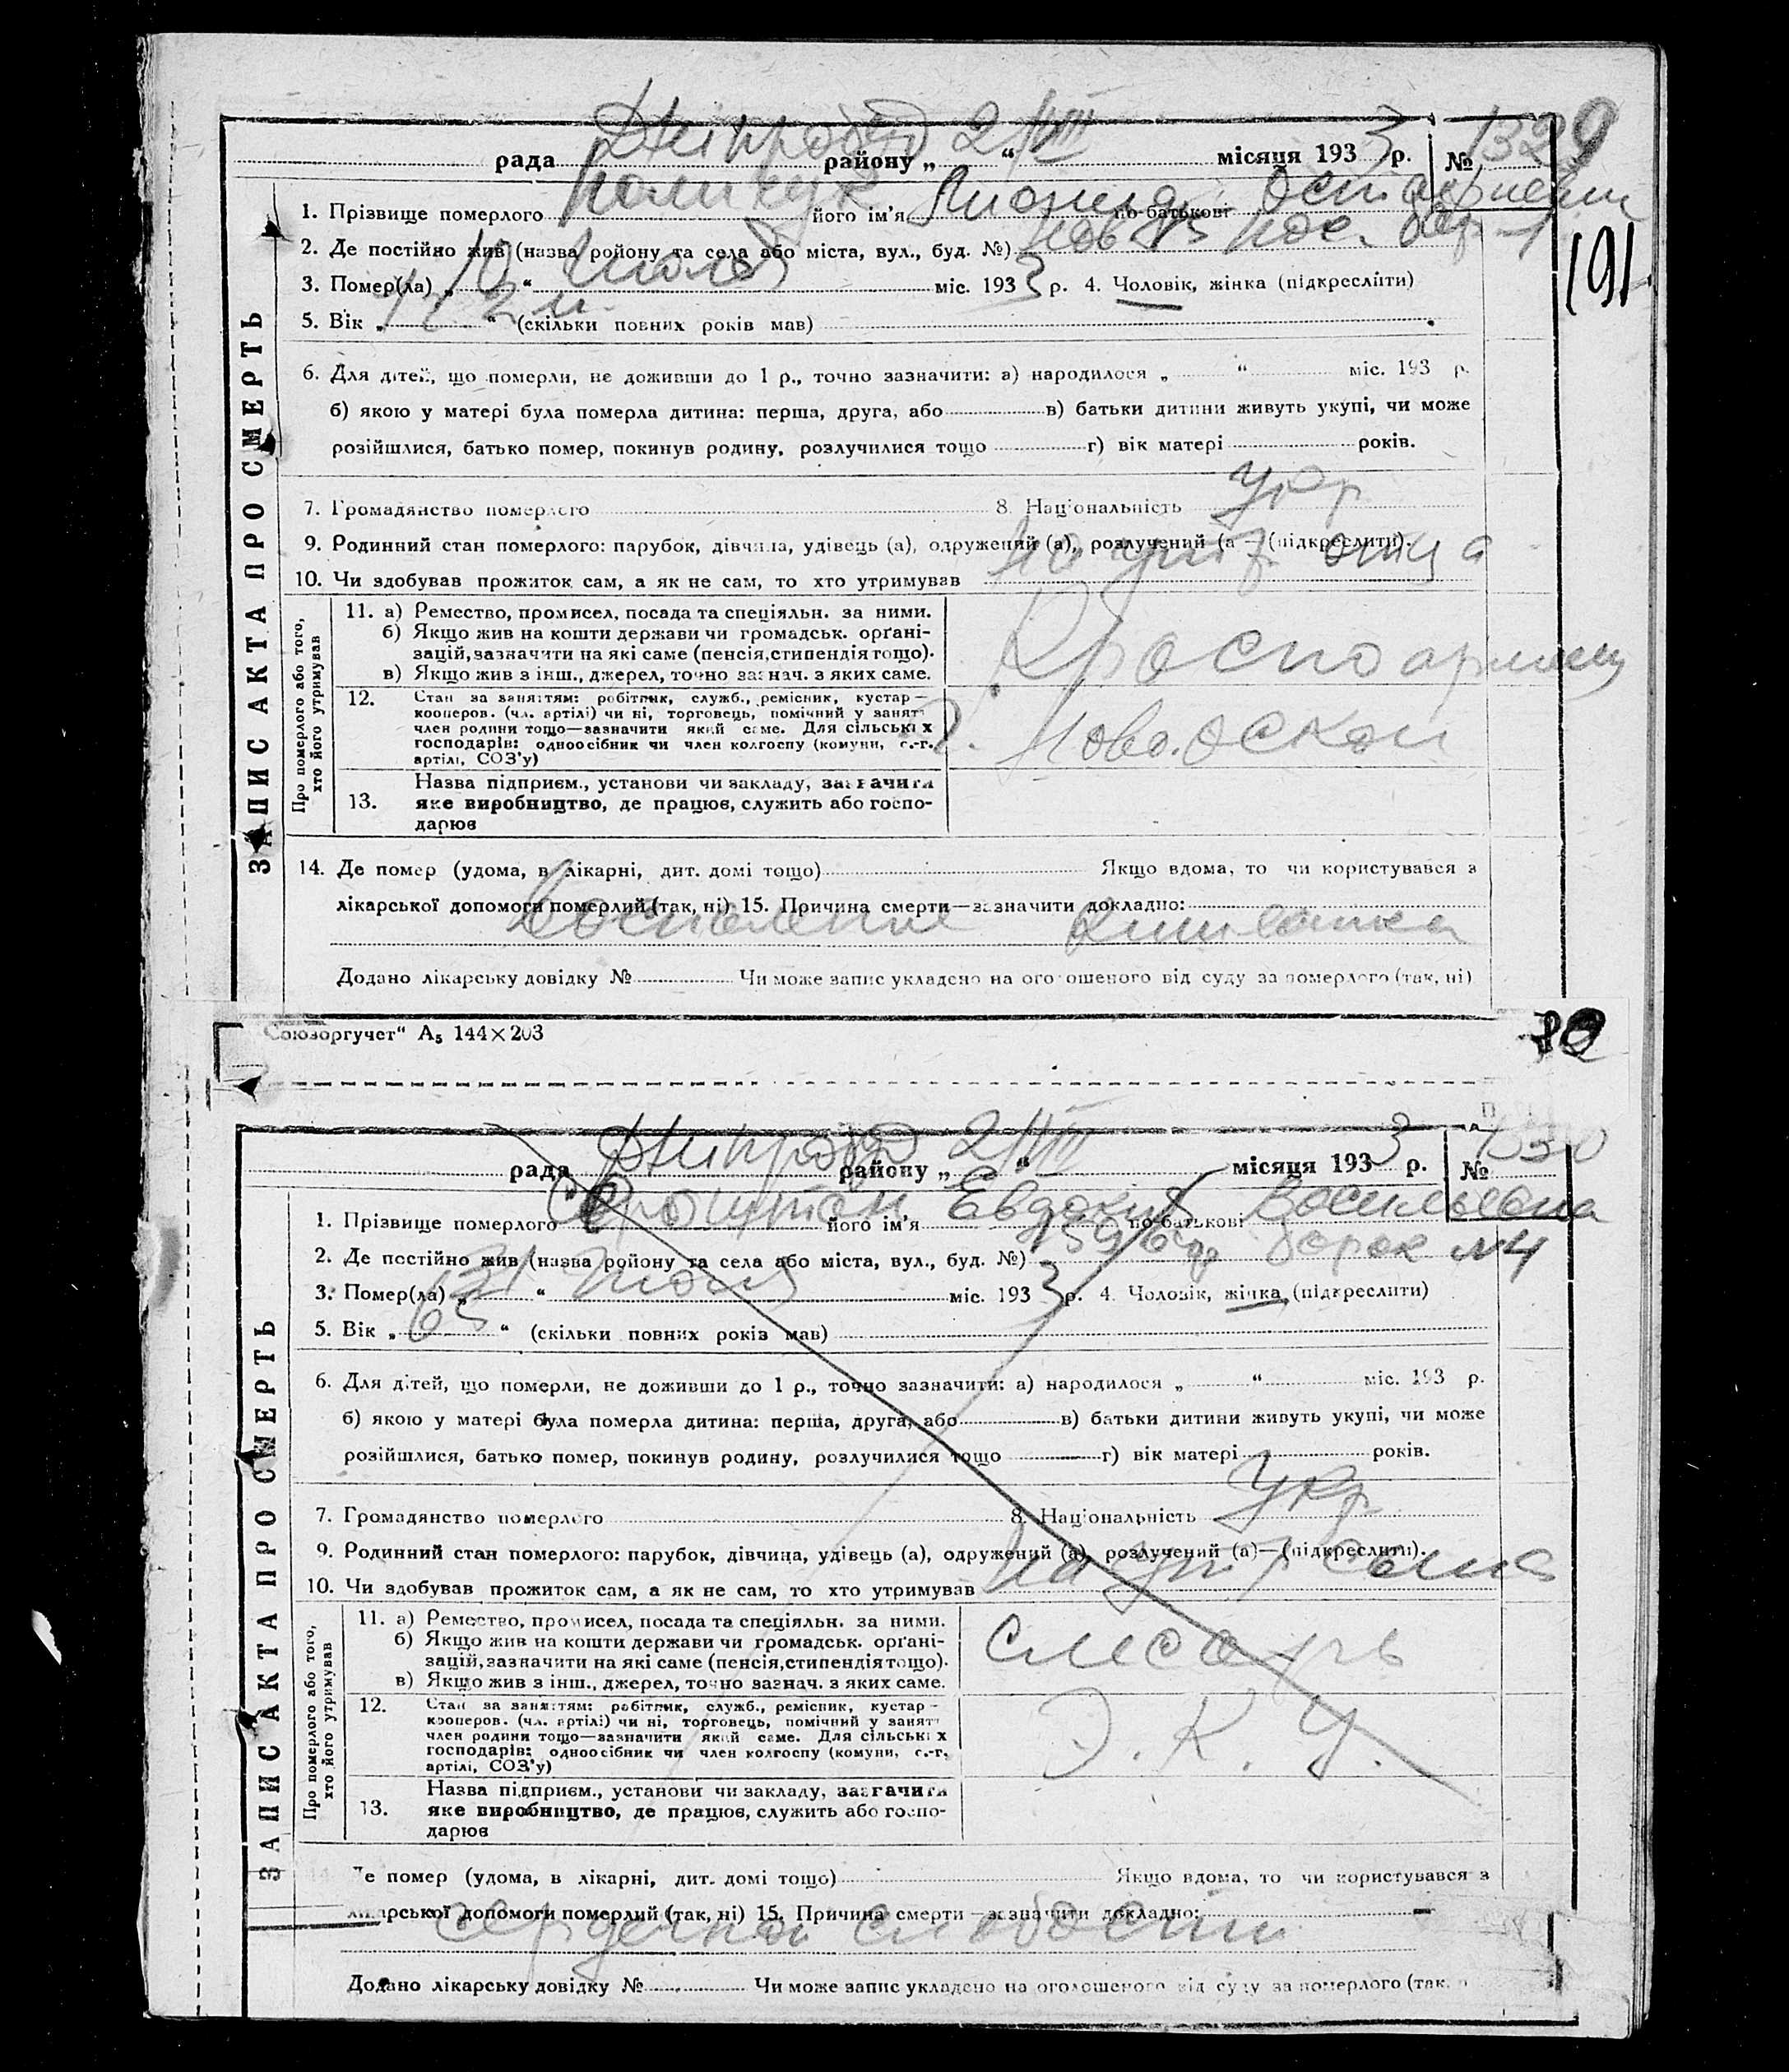 Дніпробуд 2/VIII 1329
рада районy „ “ місяця 1933 р. №
1. Прізвище померлого його ім'я по-батькові
191
2. Де постійно жив (назва ройону та села або міста, вул., буд. №)
3. Помер(ла) „ 10 “ Июля міс. 1933 р. 4. Чоловік, жінка (підкреслити)
5. Вік „ “ (скільки повних років мав)
6. Для дітей, що померли, не доживши до 1 р., точно зазначити: а) народилося „ “ міс. 193 р.
б) якою у матері була померла дитина: перша, друга, або в) батьки дитини живуть укупі, чи може
розійшлися, батько помер, покинув родину, розлучилися тощо г) вік матері років.
7. Громадянство померлого 8. Національність Укр
9. Родинний стан померлого: парубок, дівчина, удівець (а), одружений (а), розлучений (а — (підкреслити).
10. Чи здобував прожиток сам, а як не сам, то хто утримував на ижд. отца
ЗАПИС АКТА ПРО СМЕРТЬ
Про померлого або того, хто його утримував
11. а) Ремество, промисел, посада та спеціяльн. за ними.
б) Якщо жив на кошти держави чи громадськ. орґані-
зацій, зазначити на які саме (пенсія, стипендія тощо).
в) Якщо жив з інш., джерел, точно зазнач. з яких саме.
Красноармеец
12. Стан за заняттям: робітник, служб., ремісник, кустар —
кооперов. (чл. артілі) чи ні, торговець, помічний у занятт
член родини тощо—зазначити який саме. Для сільських
господарів: одноосібник чи член колгоспу (комуни, с.-г.
артілі, СОЗ'у)
13. Назва підприєм., установи чи закладу, зазначити
яке виробництво, де працює, служить або госпо-
дарює
14. Де помер (удома, в лікарні, дит. домі тощо) Якщо вдома, то чи користувався з
лікарської допомоги померлий (так, ні) 15. Причина смерти—зазначити докладно:
Воспаление
Додано лікарську довідку № Чи може запис укладено на оголошеного від суду за померлого (так, ні)
"Союзоргучет" А₅ 144×203
Дніпробуд 2/VIII 1330
рада районy „ “ місяця 1933 р. №
1. Прізвище померлого його ім'я Евдокия по-батькові Васильевна
2. Де постійно жив (назва ройону та села або міста, вул., буд. №) барак №4
3. Помер(ла) „ 31 “ Июля міс. 1933 р. 4. Чоловік, жінка (підкреслити)
5. Вік „ 65 “ (скільки повних років мав)
6. Для дітей, що померли, не доживши до 1 р., точно зазначити: а) народилося „ “ міс. 193 р.
б) якою у матері була померла дитина: перша, друга, або в) батьки дитини живуть укупі, чи може
розійшлися, батько помер, покинув родину, розлучилися тощо г) вік матері років.
7. Громадянство померлого 8. Національність Укр
9. Родинний стан померлого: парубок, дівчина, удівець (а), одружений (а), розлучений (а)—(підкреслити).
10. Чи здобував прожиток сам, а як не сам, то хто утримував на ижд. сына
ЗАПИС АКТА ПРО СМЕРТЬ
Про померлого або того, хто його утримував
11. а) Ремество, промисел, посада та спеціяльн. за ними.
б) Якщо жив на кошти держави чи громадськ. орґані-
зацій, зазначити на які саме (пенсія, стипендія тощо).
в) Якщо жив з інш., джерел, точно зазнач. з яких саме.
слесарь
12. Стан за заняттям: робітник, служб., ремісник, кустар —
кооперов. (чл. артілі) чи ні, торговець, помічний у занятт
член родини тощо—зазначити який саме. Для сільських
господарів: одноосібник чи член колгоспу (комуни, с.-г.
артілі, СОЗ'у)
Э. К. У.
13. Назва підприєм., установи чи закладу, зазначити
яке виробництво, де працює, служить або госпо-
дарює
Де помер (удома, в лікарні, дит. домі тощо) Якщо вдома, то чи користувався з
лікарської допомоги померлий (так, ні) 15. Причина смерти—зазначити докладно:
сердечная слабость
Додано лікарську довідку № Чи може запис укладено на оголошеного від суду за померлого (так,